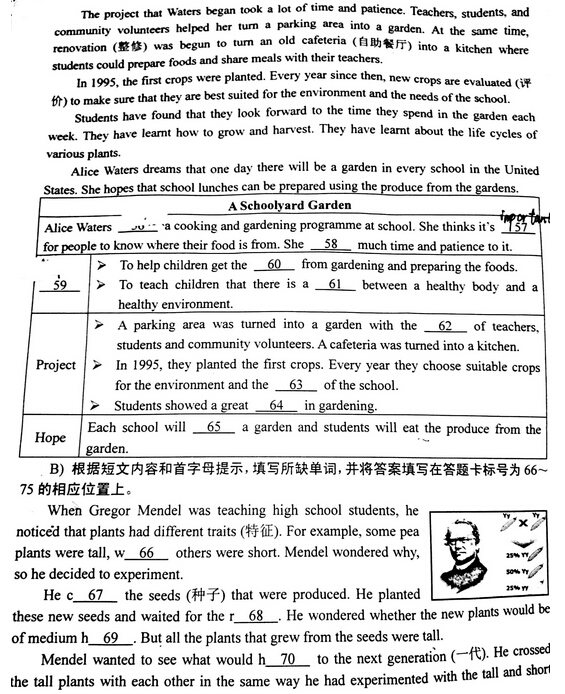 The project that Waters began took a lot of time and patience. Teachers, students, and
community volunteers helped her turn a parking area into a garden. At the same time,
renovation (整修) was begun to turn an old cafeteria (自助餐厅) into a kitchen where
students could prepare foods and share meals with their teachers.
In 1995, the first crops were planted. Every year since then, new crops are evaluated (评
价) to make sure that they are best suited for the environment and the needs of the school.
Students have found that they look forward to the time they spend in the garden each
week. They have learnt how to grow and harvest. They have learnt about the life cycles of
various plants.
Alice Waters dreams that one day there will be a garden in every school in the United
States. She hopes that school lunches can be prepared using the produce from the gardens.
A Schoolyard Garden
important
Alice Waters a cooking and gardening programme at school. She thinks it's 57
for people to know where their food is from. She 58 much time and patience to it.
59
➢ To help children get the 60 from gardening and preparing the foods.
➢ To teach children that there is a 61 between a healthy body and a
healthy environment.
Project
➢ A parking area was turned into a garden with the 62 of teachers,
students and community volunteers. A cafeteria was turned into a kitchen.
➢ In 1995, they planted the first crops. Every year they choose suitable crops
for the environment and the 63 of the school.
➢ Students showed a great 64 in gardening.
Hope
Each school will 65 a garden and students will eat the produce from the
garden.
B) 根据短文内容和首字母提示，填写所缺单词，并将答案填写在答题卡标号为 66~
75 的相应位置上。
When Gregor Mendel was teaching high school students, he
noticed that plants had different traits (特征). For example, some pea
plants were tall, w 66 others were short. Mendel wondered why,
so he decided to experiment.
Yy X Yy
25% YY
50% Yy
25% yy
He c 67 the seeds (种子) that were produced. He planted
these new seeds and waited for the r 68 . He wondered whether the new plants would be
of medium h 69 . But all the plants that grew from the seeds were tall.
Mendel wanted to see what would h 70 to the next generation (一代). He crossed
the tall plants with each other in the same way he had experimented with the tall and short